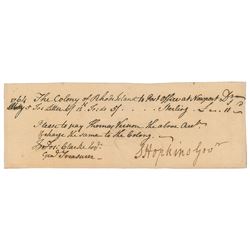 1764 The Colony of Rhode Island to Post office at Newport Dr
To Letters
Sterling
Please to pay Thomas Vernon the above Acct.
& charge the same to the Colony
To Jos: Clarke Esqr.
Genl Treasurer
S Hopkins Govr